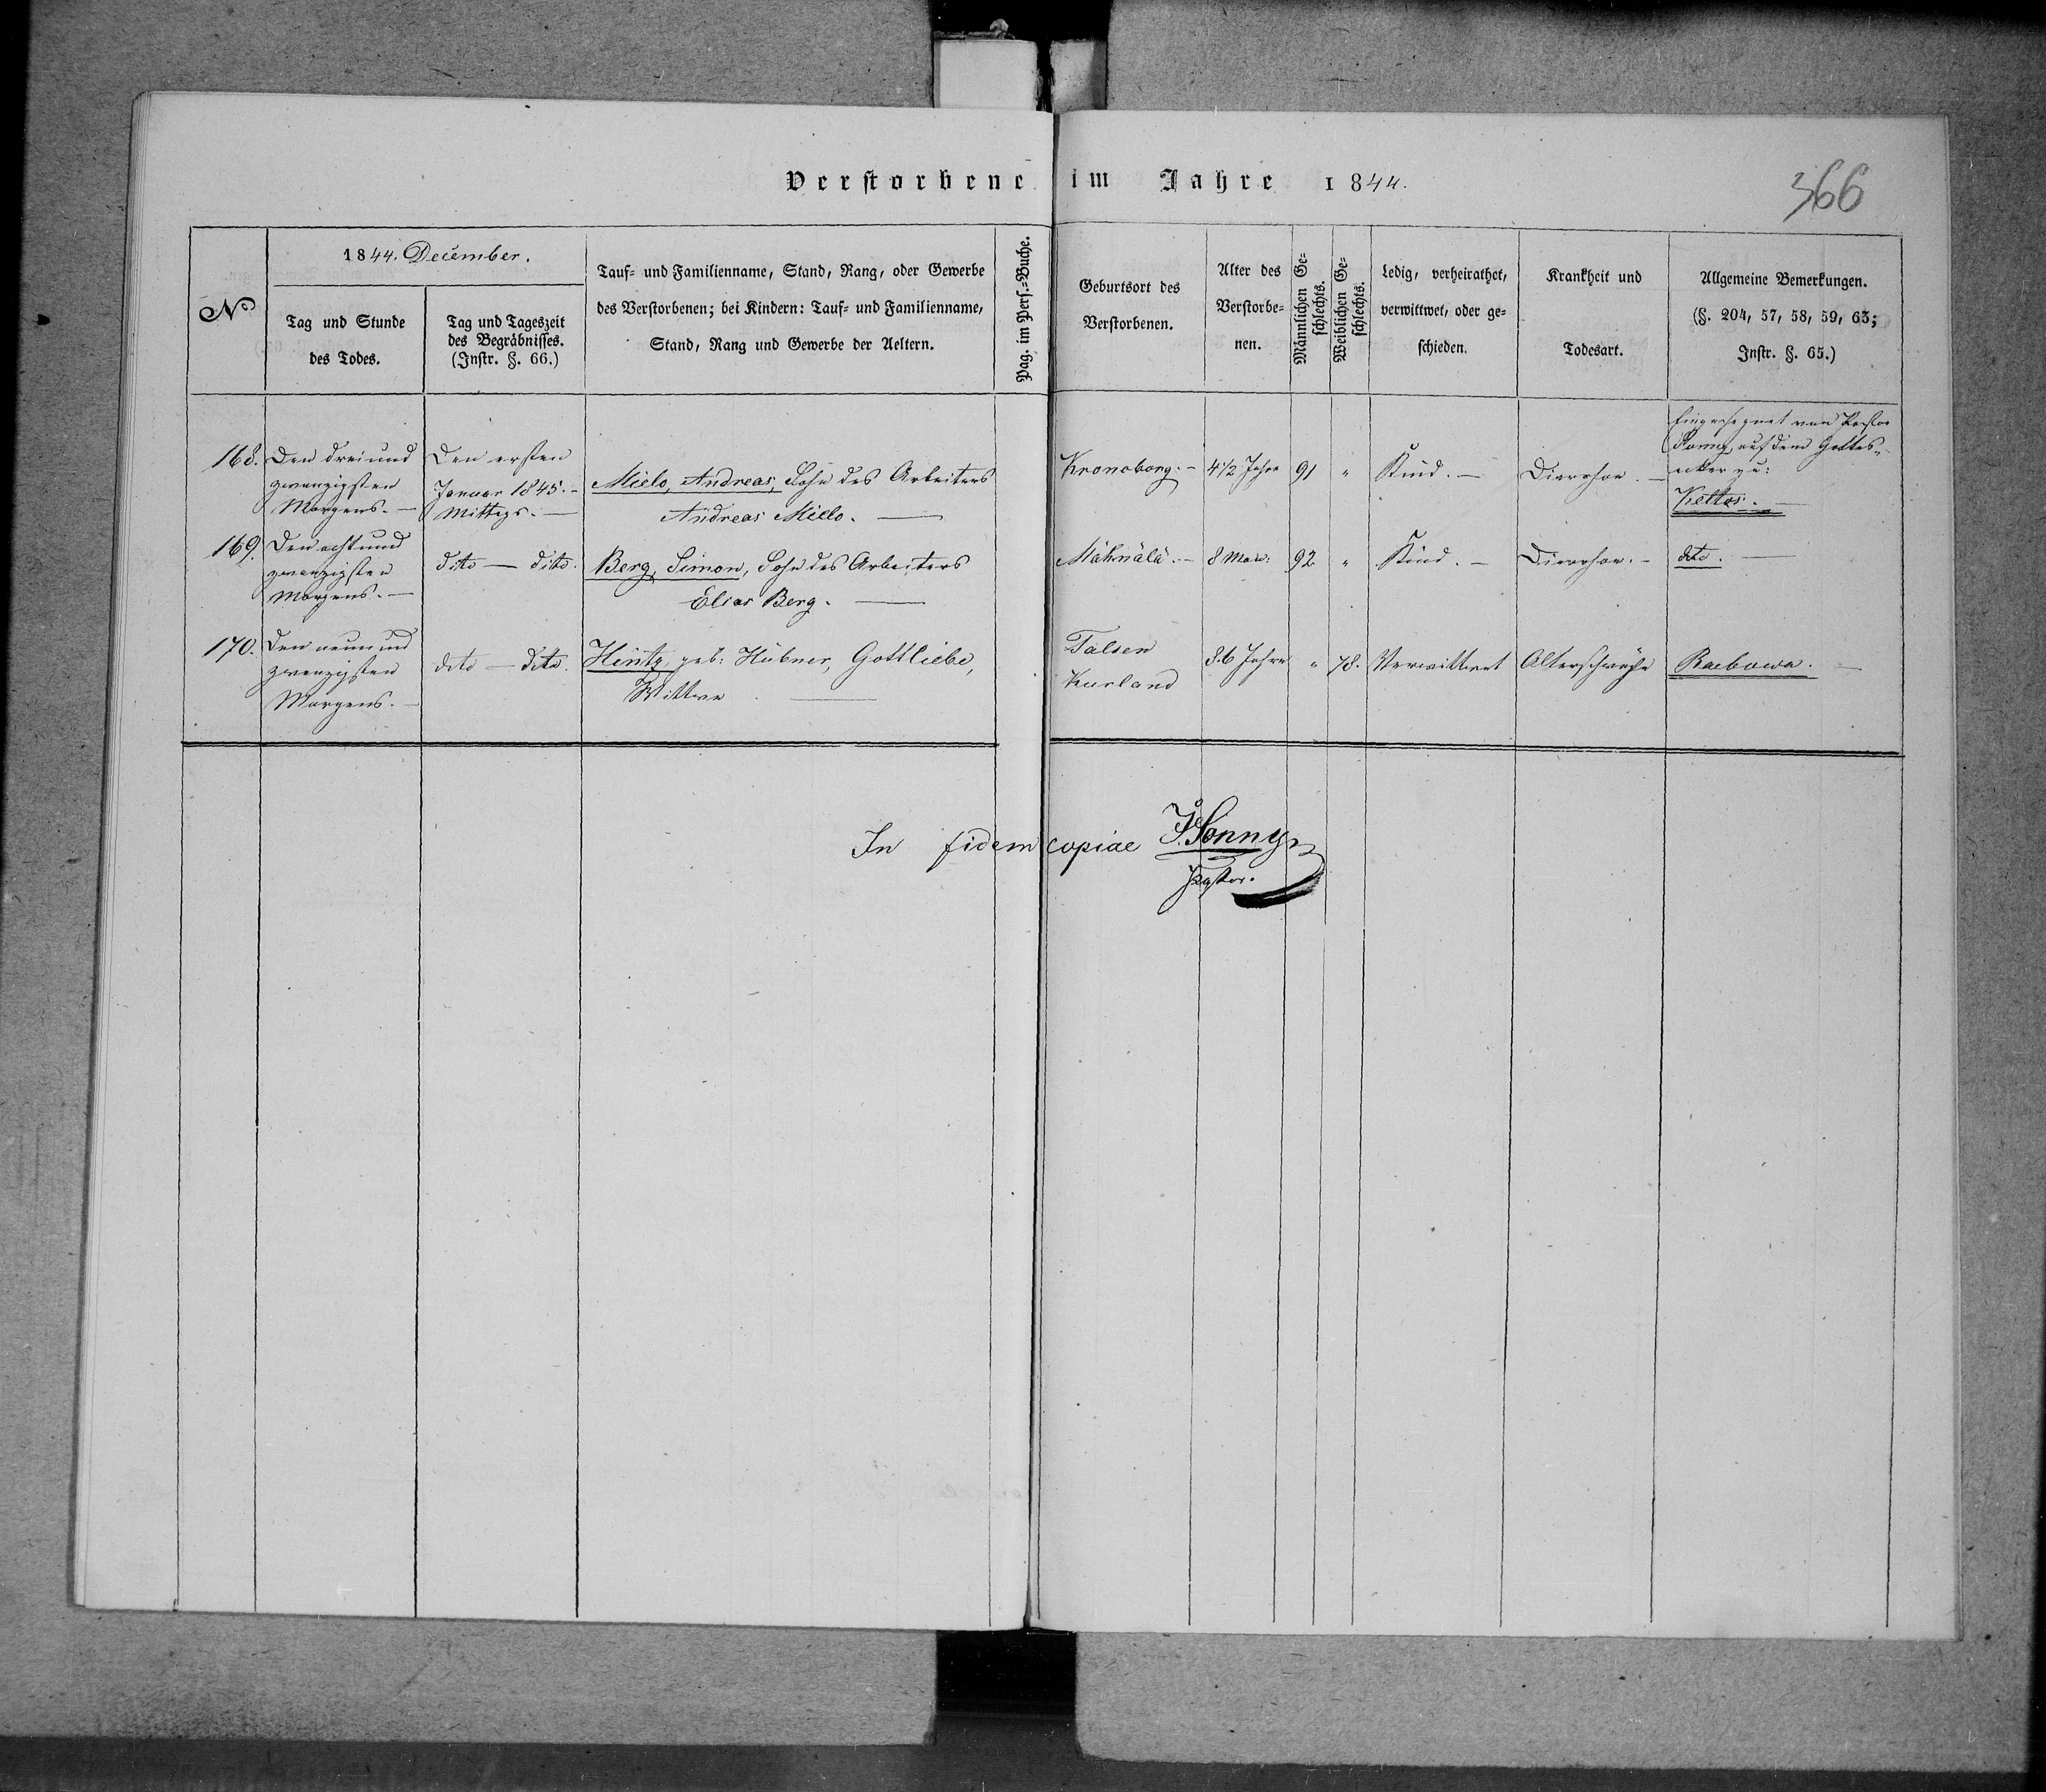 Verstorbene im Jahre 1844.
366
No
1844. December.
Tag und Stunde
des Todes.
Tag und Tageszeit
des Begräbnisses.
(Instr. §. 66.)
Tauf- und Familienname, Stand, Rang, oder Gewerbe
des Verstorbenen; bei Kindern: Tauf- und Familienname,
Stand, Rang und Gewerbe der Aeltern.
Pag. im Pers.-Buche.
Geburtsort des
Verstorbenen.
Alter des
Verstorbe-
nen.
Männlichen Ge-
schlechts.
Weiblichen Ge-
schlechts.
Ledig, verheirathet,
verwittwet, oder ge-
schieden.
Krankheit und
Todesart.
Allgemeine Bemerkungen.
(§. 204, 57, 58, 59, 63;
Instr. §. 65.)
168.
Den drei und
zwanzigsten
Morgens. —
Den ersten
Januar 1845. –
Mittags. —
Mielo, Andreas, Sohn des Arbeiters
Andreas Mielo. —
Kronoborg. –
4 1/2 Jahre
91
"
Kind. —
Diarrhoe. —
Eingesegnet von Pastor
Sonny, auf dem Gottes-
acker zu:
Keltos. —
169.
Den acht und
zwanzigsten
Morgens. —
dito — dito.
Berg, Simon, Sohn des Arbeiters
Elias Berg. —
Mähnälä. –
8 Mon:
92
"
Kind. —
Diarrhoe. –
dito. —
170.
Den neun und
zwanzigsten
Morgens. —
dito — dito.
Hintz, geb: Hübner, Gottliebe,
Wittwe. —
Talsen
Kurland
86 Jahre
"
78.
Verwittwet
Altersschwäche
Raebowa. —
In fidem copiae J. Sonny
Pastor.